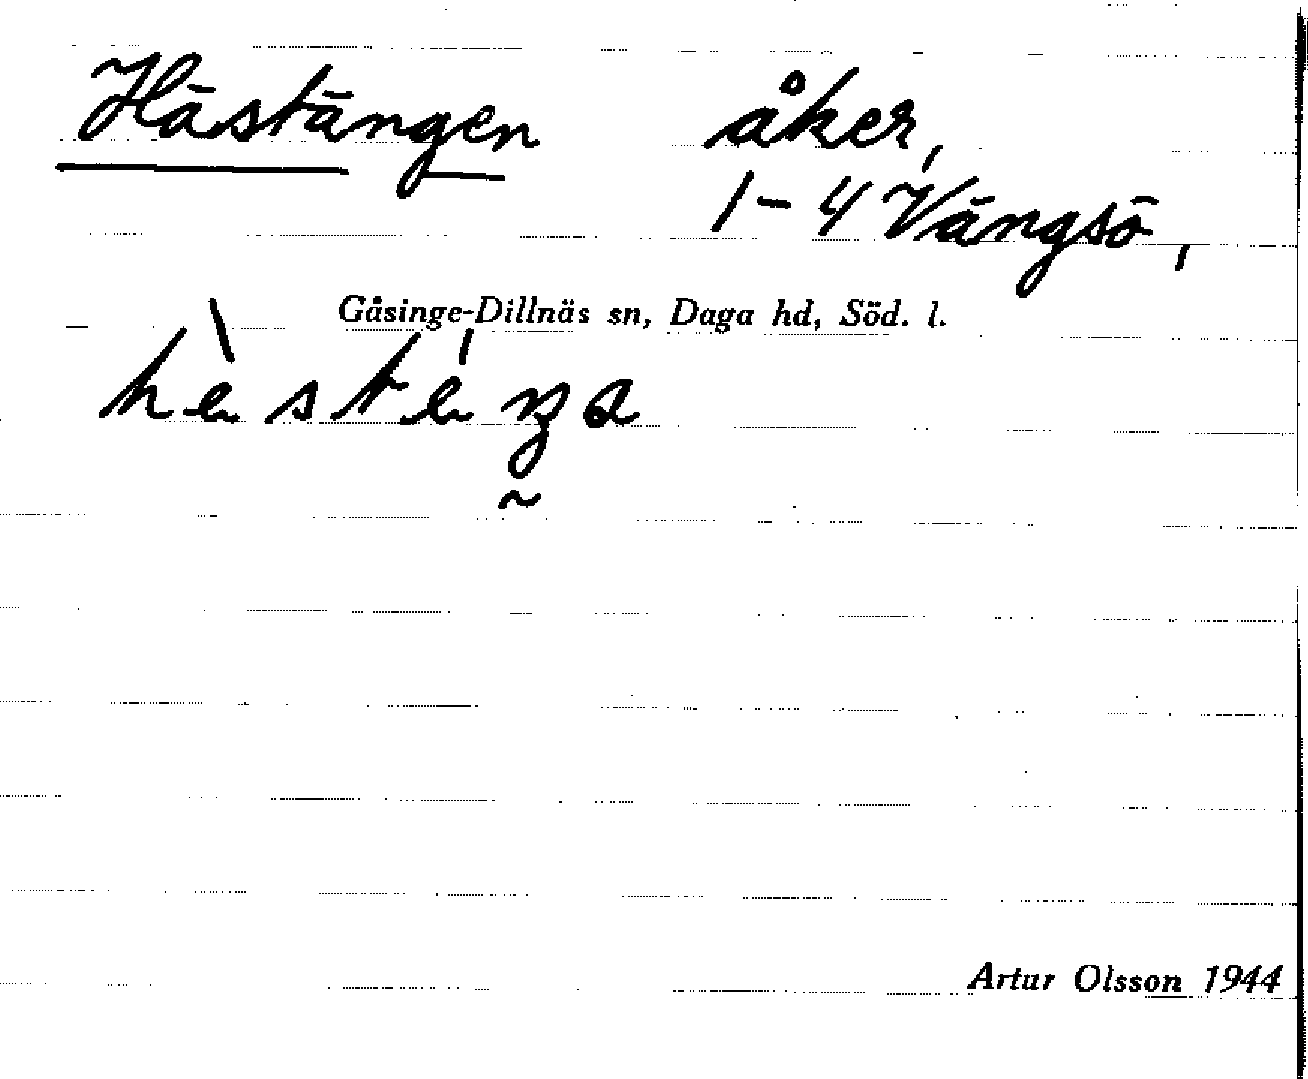 Hästängen åker,
1-4 Vängsö,
Gåsinge-Dillnäs sn, Daga hd, Söd. l.
Artur Olsson 1944